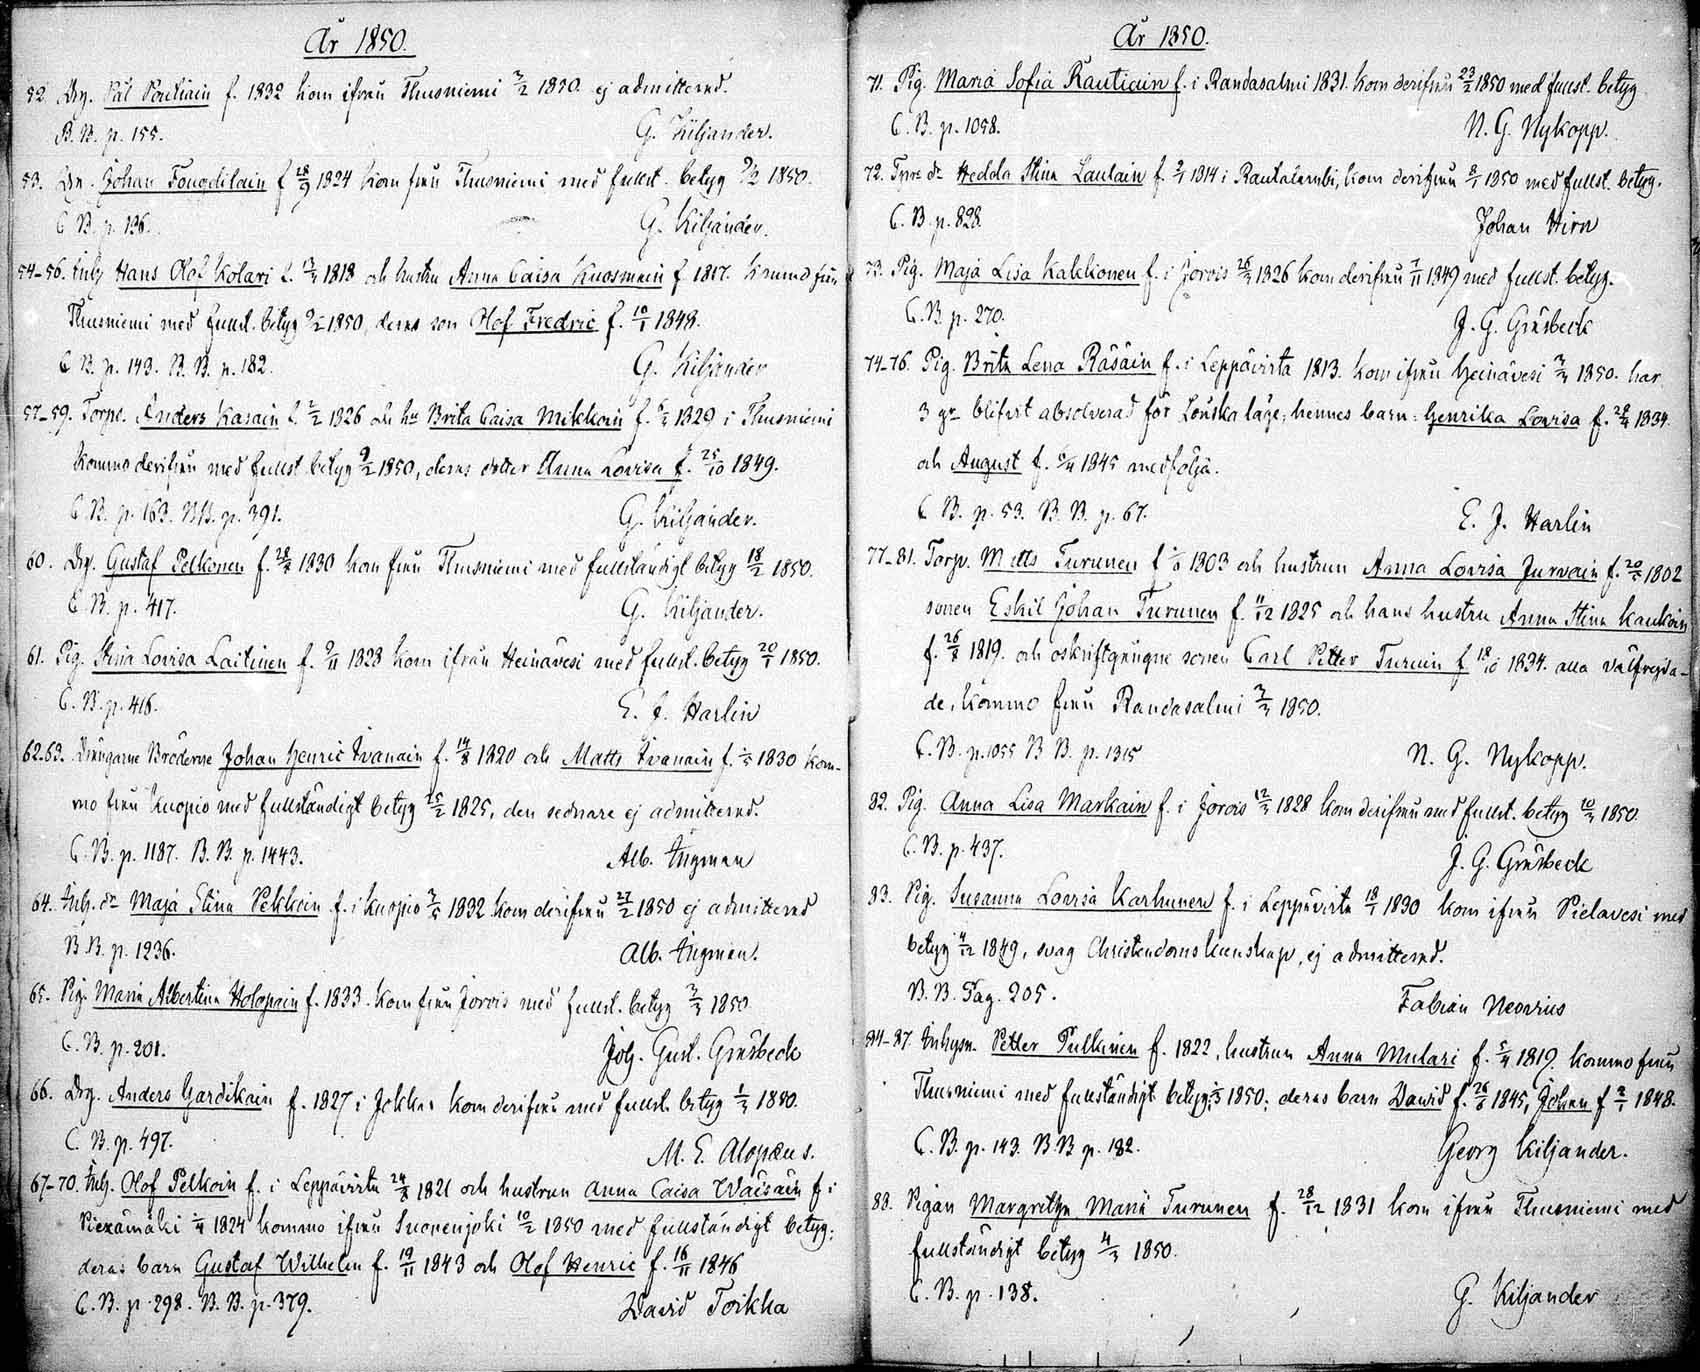 År 1850.
52. Drg. Pål Poutiain f. 1832 kom ifrån Thusniemi 3/2 1850. ej admitterad.
B. B. p. 155. G. Kiljander.
53. Dr. Johan Fougdilain f 28/9 1824 kom från Thusniemi med fullst. betyg 9/2 1850.
C. B. p. 136. G. Kiljander.
54-56. Inhy Hans Olof Kolari f. 1818 och hustru Anna Caisa Kuosmain f 1817. komma från
Thusniemi med fullst. betyg 9/2 1850, deras son Olof Fredric f. 10/1 1848.
C. B. p. 143. B. B. p. 182. G. Kiljander
57-59. Torpc. Anders Kasain f. 1826 och hu Brita Caisa Mikkoin f. 1829 i Thusniemi
komma derifrån med fullst. betyg 9/2 1850, deras dotter Anna Lovisa f. 25/10 1849.
C. B. p. 163. B.B. p. 391. G. Kiljander.
60. Drg. Gustaf Pelkonen f. 1830 kom från Thusniemi med fullständigt betyg 18/2 1850.
C. B. p. 417. G. Kiljander.
61. Pig. Stina Lovisa Laitinen f. 9/11 1828 kom ifrån Heinävesi med fullst. betyg 20/1 1850.
C. B. p. 416. E. J. Harlin
62-63. Drängarne Bröderne Johan Henric Ivanain f. 14/8 1820 och Matts Ivanain f. 1830 kom-
mo från Kuopio med fullständigt betyg 25/2 1825, den sednare ej admitterad.
C. B. p. 1187. B. B. p. 1443. Alb. Ingman
64. Inh. dr Maja Stina Pekkain f. i Kuopio 3/5 1832 kom derifrån 27/2 1850 ej admitterad
B.B. p. 1236. Alb. Ingman.
65. Pig. Maria Albertina Holopain f. 1833. kom från Jorois med fullst. betyg 3/3 1850.
C. B. p. 201. Joh. Gust. Gråsbeck
66. Drg. Anders Gardikain f. 1827 i Jokkas kom derifrån med fullst. betyg 1/3 1850.
C. B. p. 497. M. E. Alopæus.
67-70. Inh. Olof Pelkoin f. i Leppävirta 24/8 1821 och hustrun Anna Caisa Wäisäin f i
Piexämäki 1824 kommo ifrån Suonenjoki 10/2 1850 med fullständigt betyg;
deras barn Gustaf Wilhelm f. 19/11 1843 och Olof Henric f. 16/11 1846
C. B. p. 298. B. B. p. 379. David Toikka
År 1850.
71. Pig. Maria Sofia Rautiain f. i Randasalmi 1831. kom derifrån 23/2 1850 med fullst. betyg
C. B. p. 1058. N. G. Nykopp.
72. Torp dr Hedda Stina Laulain f. 2/1 1814 i Rautalambi, kom derifrån 8/1 1850 med fullst. betyg.
C. B. p. 828. Johan Hirn
73. Pig. Maja Lisa Kakkonen f. i Jorois 26/3 1826 kom derifrån 7/11 1849 med fullst. betyg.
C. B. p. 270. J. G. Gråsbeck
74-76. Pig. Brita Lena Räsäin f. i Leppävirta 1813. kom ifrån Heinävesi 3/3 1850. har
3 gr blifvit absolverad för Lönska läge; hennes barn: Henrika Lovisa f. 1834.
och August f. 5/4 1845 medfölja.
C. B. p. 53. B. B. p. 67. E. J. Harlin
77-81. Torp. Matts Turunen f 1803 och hustrun Anna Lovisa Jurvain f. 20/5 1802
sonen Eskil Johan Turunen f. 11/12 1825 och hans hustru Anna Stina Kaukoin
f. 26/8 1819. och oskriftgångne sonen Carl Petter Turuin f 1834. alla välfrejda-
de, kommo från Randasalmi 3/3 1850.
C. B. p. 1055 B B. p. 1315 N. G. Nykopp.
82. Pig. Anna Lisa Markain f. i Jorois 12/3 1828 kom derifrån med fullst. betyg 10/3 1850.
C. B. p. 437. J. G. Gråsbeck
83. Pig. Susanna Lovisa Karhunen f. i Leppävirta 18/1 1830 kom ifrån Pielavesi med
betyg 4/12 1849, svag Christendoms kunskap, ej admitterad.
B. B. Pag. 205. Fabian Neovius
84-87. Inhysn. Petter Pulkinen f. 1822, hustrun Anna Mulari f. 5/4 1819. kommo från
Thusniemi med fullständigt betyg 1850; deras barn David f. 26/6 1845, Johan f 2/1 1848.
C. B. p. 143. B. B p. 182. Georg Kiljander.
88. Pigan Margretha Maria Turunen f. 28/12 1831 kom ifrån Thusniemi med
fullständigt betyg 4/3 1850.
C. B. p. 138. G. Kiljander